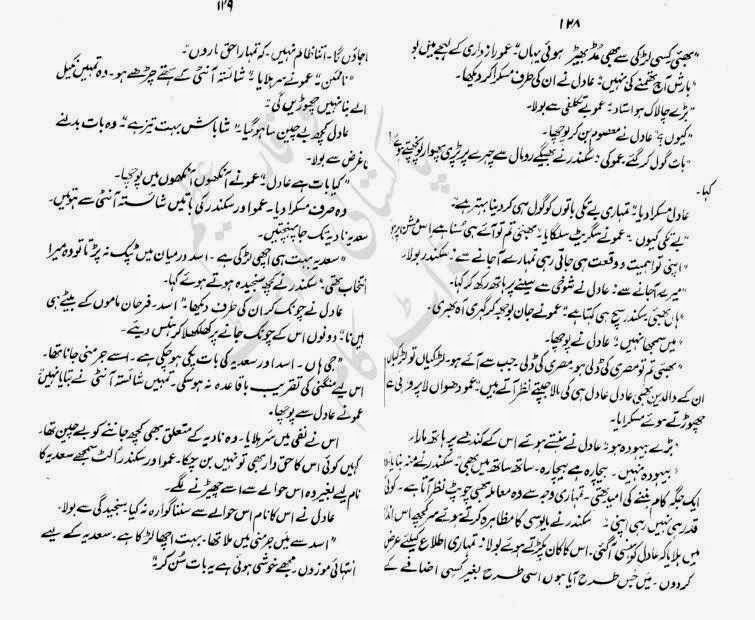 ۱۲۸
"بھئی کسی لڑکی سے بھی مڈبھیڑ ہوئی یہاں" عمو رازداری کے لہجے میں بولا
"بارش آج تھمنے کی نہیں" عادل نے ان کی طرف مسکرا کر دیکھا۔
"بڑے چالاک ہو استاد" عمو بے تکلفی سے بولا۔
"کیوں؟" عادل نے معصوم بن کر پوچھا۔
"بات گول کر گئے عمو کی" سکندر نے بھیگے رومال سے چہرے پر پڑی پھوار پونچھتے ہوئے
کہا۔
عادل مسکرا دیا "تمہاری بے تکی باتوں کو گول ہی کر دینا بہتر ہے"
"بے تکی کیوں" عمو نے سگریٹ سلگایا "بھئی تم تو آئے ہی سنا ہے اس مشن پر ہو
"اپنی تو اہمیت و وقعت ہی جاتی رہی تمہارے آجانے سے" سکندر بولا۔
"میرے آجانے سے" عادل نے شوخی سے سینے پر ہاتھ رکھ کر کہا۔
"ہاں بھئی سکندر سچ ہی کہتا ہے" عمو نے جان بوجھ کر گہری آہ بھری۔
"میں سمجھا نہیں" عادل نے پوچھا۔
"بھئی تم تو مصری کی ڈلی ہو مصری کی ڈلی۔ جب سے آئے ہو۔ لڑکیاں تو لڑکیاں
ان کے والدین بھی عادل عادل ہی کی مالا جپتے نظر آتے ہیں" عمو دھواں لاپروائی سے
چھوڑتے ہوئے مسکرایا۔
"بڑے بیہودہ ہو" عادل نے ہنستے ہوئے اس کے کندھے پر ہاتھ مارا۔
"بیہودہ نہیں۔ بیچارہ ہے بیچارہ۔ ساتھ ساتھ میں بھی" سکندر نے منہ بنایا
ایک جگہ کام بننے کی امید تھی۔ تمہاری وجہ سے وہ معاملہ بھی چوپٹ نظر آتا ہے۔ کوئی
قدر ہی نہیں رہی اپنی" سکندر نے مایوسی کا مظاہرہ کرتے ہوئے سر کچھ اس انداز
میں ہلایا کہ عادل کو ہنسی آگئی۔ اس کا کان پکڑتے ہوئے بولا "تمہاری اطلاع کیلئے عرض
کر دوں۔ میں جس طرح آیا ہوں اسی طرح بغیر کسی اضافے کے
۱۲۹
جاؤں گا۔ اتنا ظالم نہیں۔ کہ تمہارا حق ماروں"
"ناممکن" عمو نے سر ہلایا "شائستہ آنٹی کے ہتھے چڑھے ہو۔ وہ تمہیں نکیل
ڈالے بنا نہیں چھوڑیں گی"
عادل کچھ بے چین سا ہو گیا "شاباش بہت تیز ہے" وہ بات بدلنے
کی غرض سے بولا۔
"کیا بات ہے عادل" عمو نے آنکھوں آنکھوں میں پوچھا۔
وہ صرف مسکرا دیا۔ عمو اور سکندر کی باتیں شائستہ آنٹی سے ہوتیں۔
سعدیہ نادیہ تک جا پہنچتیں۔
"سعدیہ بہت ہی اچھی لڑکی ہے۔ اسد درمیان میں ٹپک نہ پڑتا تو وہ میرا
انتخاب تھی" سکندر نے کچھ سنجیدہ ہوتے ہوئے کہا۔
عادل نے چونک کر ان کی طرف دیکھا "اسد۔ فرحان ماموں کے بیٹے ہی
ہیں نا" دونوں اس کے چونک جانے پر کھلکھلا کر ہنس دیئے۔
"جی ہاں۔ اسد اور سعدیہ کی بات پکی ہو چکی ہے۔ اسے جرمنی جانا تھا۔
اس لیے منگنی کی تقریب باقاعدہ نہ ہو سکی۔ تمہیں شائستہ آنٹی نے بتایا نہیں"
عمو نے عادل سے پوچھا۔
اس نے نفی میں سر ہلایا۔ وہ نادیہ کے متعلق بھی کچھ جاننے کو بے چین تھا۔
کہیں کوئی اس کا حق دار بھی تو نہیں بن چکا۔ عمو اور سکندر الٹ سمجھے سعدیہ کا
نام لیے بغیر وہ اس حوالے سے اسے چھیڑنے لگے۔
عادل نے اس کا نام اس حوالے سے سننا گوارہ نہ کیا سنجیدگی سے بولا۔
"اسد سے میں جرمنی ملا تھا۔ بہت اچھا لڑکا ہے۔ سعدیہ کے لیے
انتہائی موزوں۔ مجھے خوشی ہوئی ہے یہ بات سُن کر"